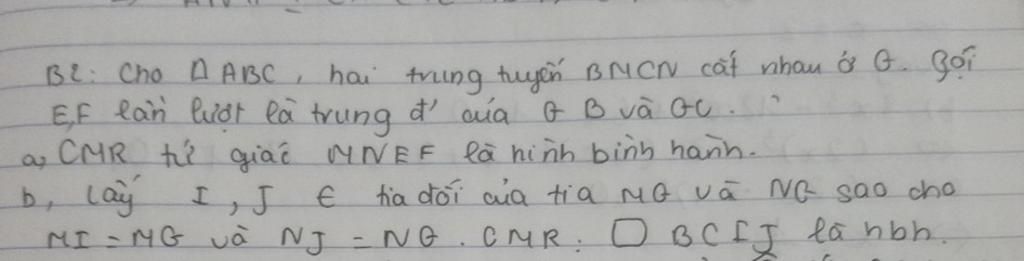 B2: Cho △ ABC, hai trung tuyến BMCN cắt nhau ở G. Gọi
E,F lần lượt là trung đ' của G B và GC.
a, CMR tứ giác MNEF là hình bình hành.
b, Lấy I, J ∈ tia đối của tia MG và NG sao cho
MI = MG và NJ = NG. CMR: □ BCIJ là hbh.